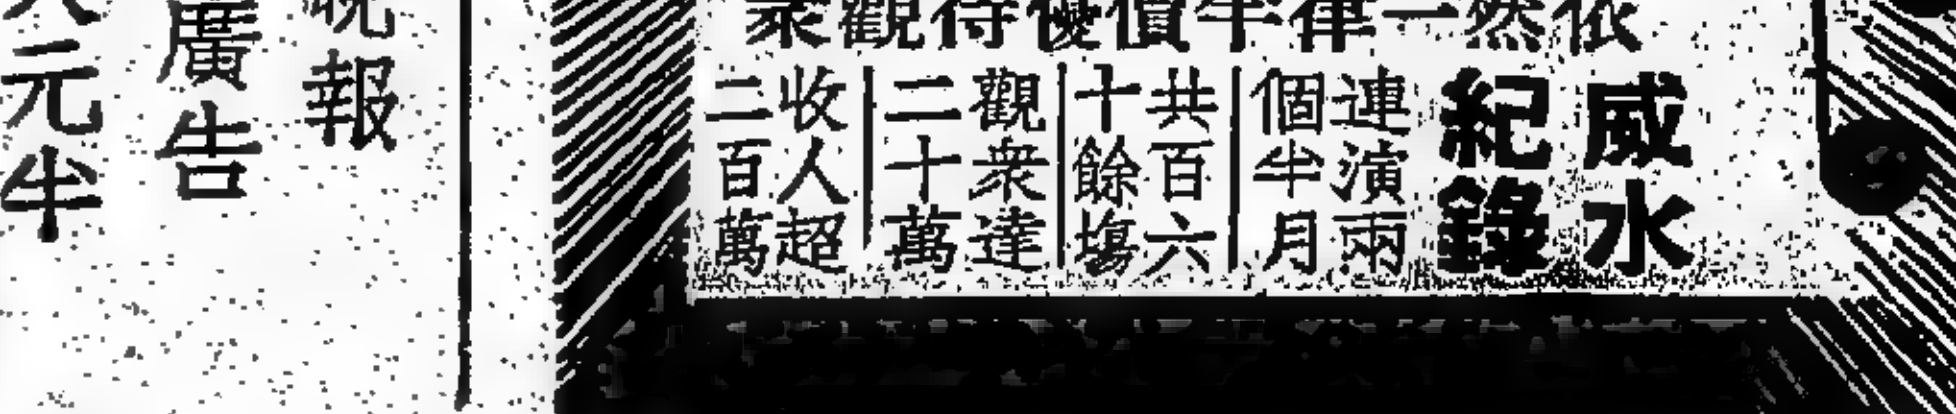 依然一律半價優待觀衆
威水
紀錄
連演兩
個半月
共百六
十餘塲
觀衆達
二十萬
收人超
二百萬
晚報
廣告
元半